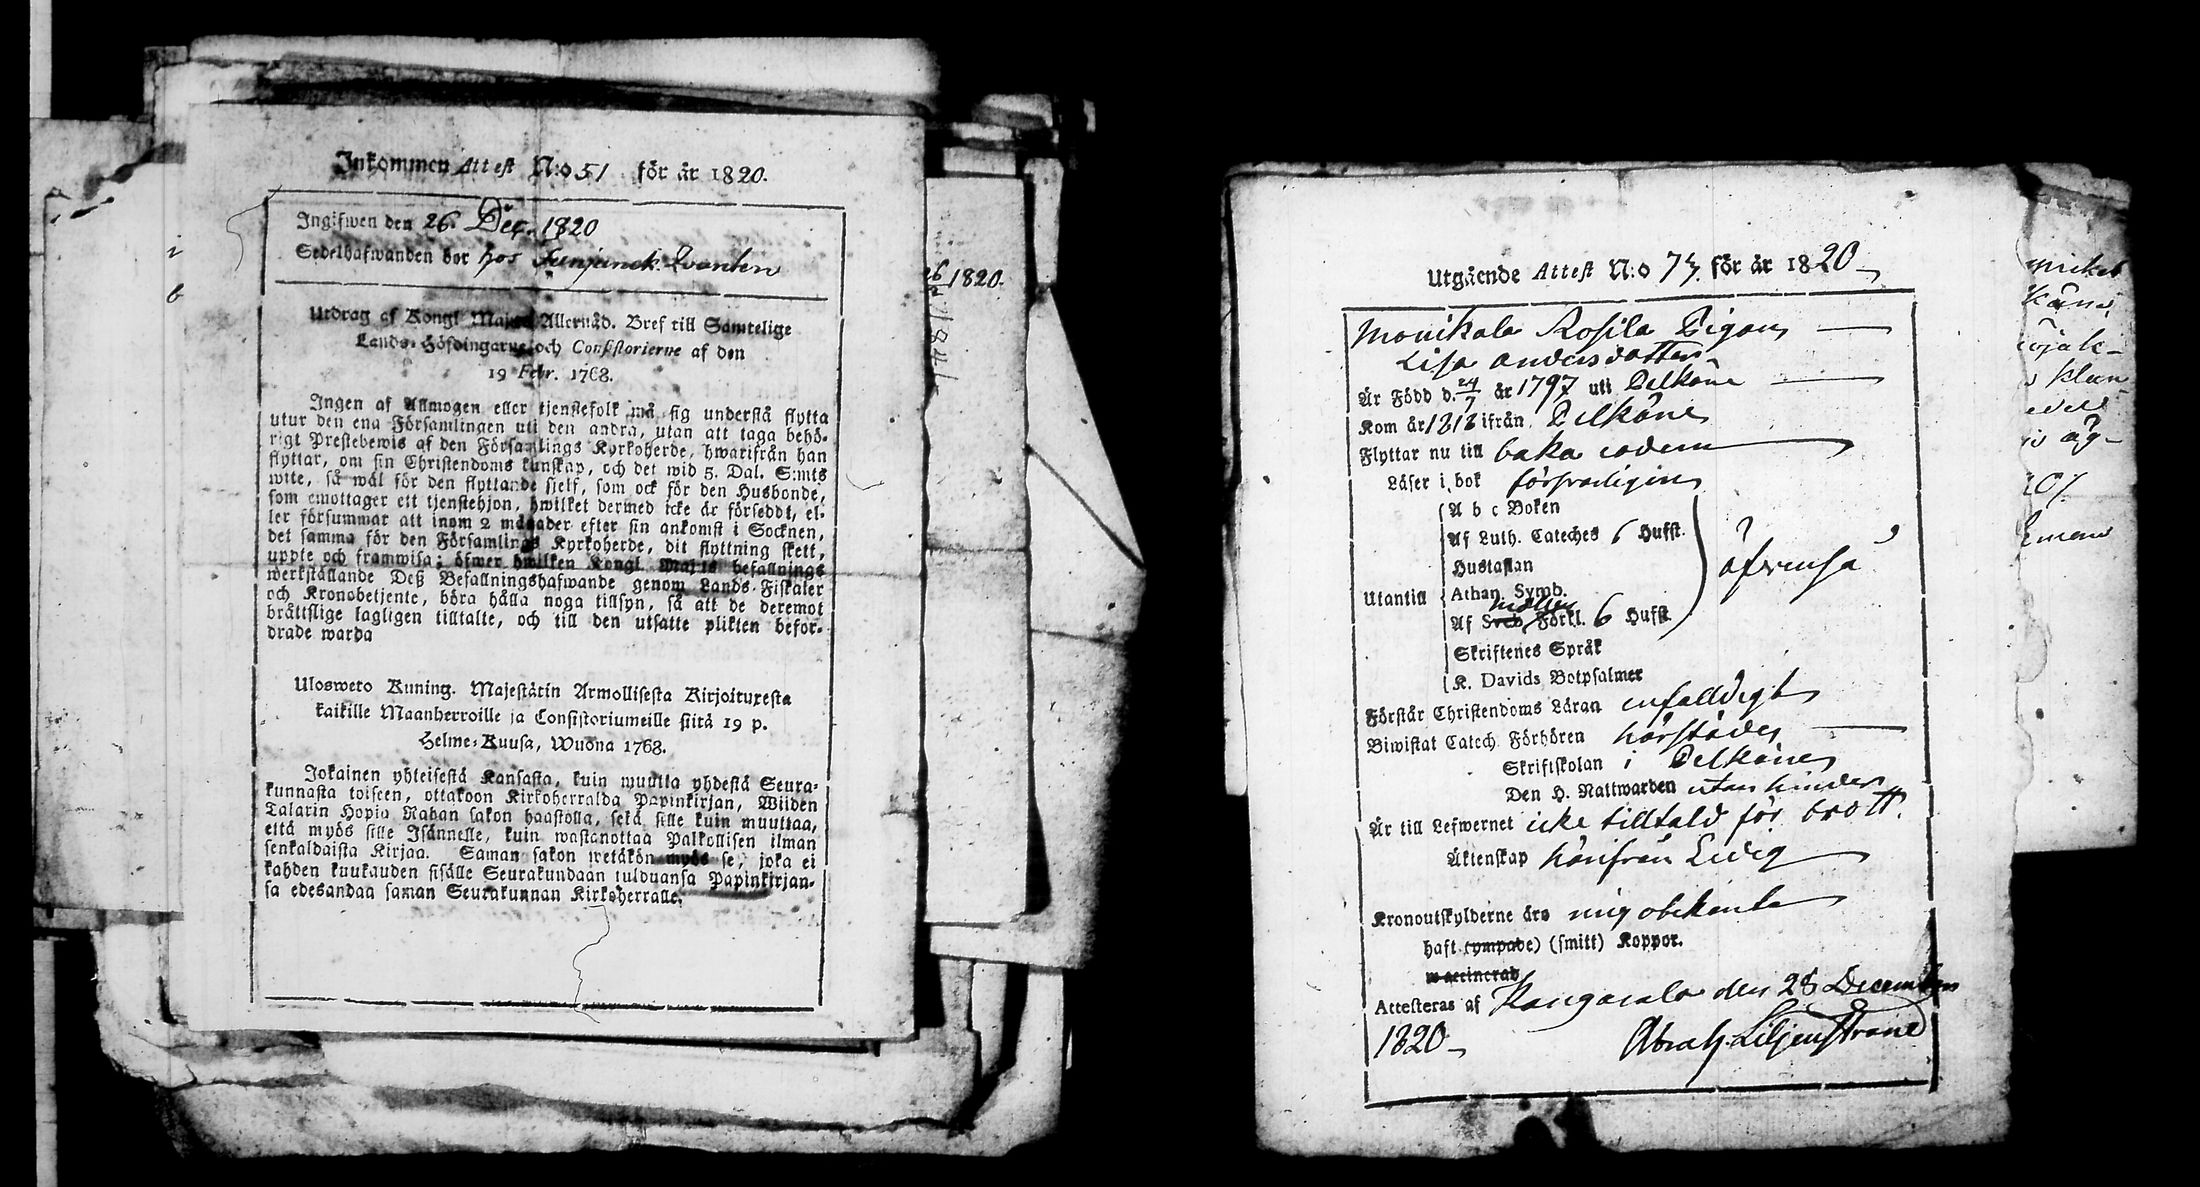 Inkommen Attest N:o 51 för år 1820.
Ingifwen den 26. Dec. 1820
Sedelhafwanden bor hos
Utdrag af Kongl Maj:ts Allernåd. Bref till Samtelige
Lands-Höfdingarne och Consistorierne af den
19 Febr. 1768.
Ingen af Allmogen eller tjenstefolk må sig understå flytta
utur den ena Församlingen uti den andra, utan att taga behö-
rigt Prestebewis af den Församlings Kyrkoherde, hwarifrån han
flyttar, om sin Christendoms kunskap, och det wid 5. Dal. S:mts
wite, så wäl för den flyttande sjelf, som ock för den Husbonde,
som emottager ett tjenstehjon, hwilket dermed icke är försedt, el-
ler försummar att inom 2 månader efter sin ankomst i Socknen,
det samma för den Församlings Kyrkoherde, dit flyttning skett,
uppte och framwisa; öfwer hwilken Kongl Maj:ts befallnings
werkställande Deß Befallningshafwande genom Lands-Fiskaler
och Kronobetjente, böra hålla noga tillsyn, så att de deremot
bråttslige lagligen tilltalte, och till den utsatte plikten befor-
drade warda
Ulosweto Kuning. Majestätin Armollisesta Kirjoituxesta
kaikille Maanherroille ja Consistoriumeille siitä 19 p.
Helme-Kuusa, Wuona 1768.
Jokainen yhteisestä Kansasta, kuin muutta yhdestä Seura-
kunnasta toiseen, ottakoon Kirkoherralda Papinkirjan, Wiiden
Talarin Hopia Rahan sakon haastolla, sekä sille kuin muuttaa,
että myös sille Isännelle, kuin wastanottaa Palkollisen ilman
senkaldaista Kirjaa. Saman sakon wetäkön myös se, joka ei
kahden kuukauden sisälle Seurakundaan tulduansa Papinkirjan-
sa edesandaa saman Seurakunnan Kirkoherralle.
26 1820.
Utgående Attest N:o 74. för år 1820
Monikala Rosila Pigan
Lisa Andersdotter
Är Född d. 24/7 år 1797 uti Pelkäne
Kom år 1818 ifrån Pelkäne
Flyttar nu till baka eodem
Läser i bok försvarligen
A b c Boken
Af Luth. Cateches 6 Hufst.
Hustaflan
öfvenså
Utantill Athan. Symb.
Af Sveb. Förkl. 6 Hufst.
Skriftenes Språk
K. Davids Botpsalmer
Förstår Christendoms Läran enfalldigt
Biwistat Catech. Förhören härstädes
Skriftskolan i Pelkäne
Den H. Nattwarden utan hinder
Är till Lefwernet icke tilltald för brott.
Äktenskap härifrån Ledig
Kronoutskylderne äro mig obekanta
haft (ympade) (smitt) Koppor.
Attesteras af Kangasala den 28 December
1820 Abrah. Liljenstrand